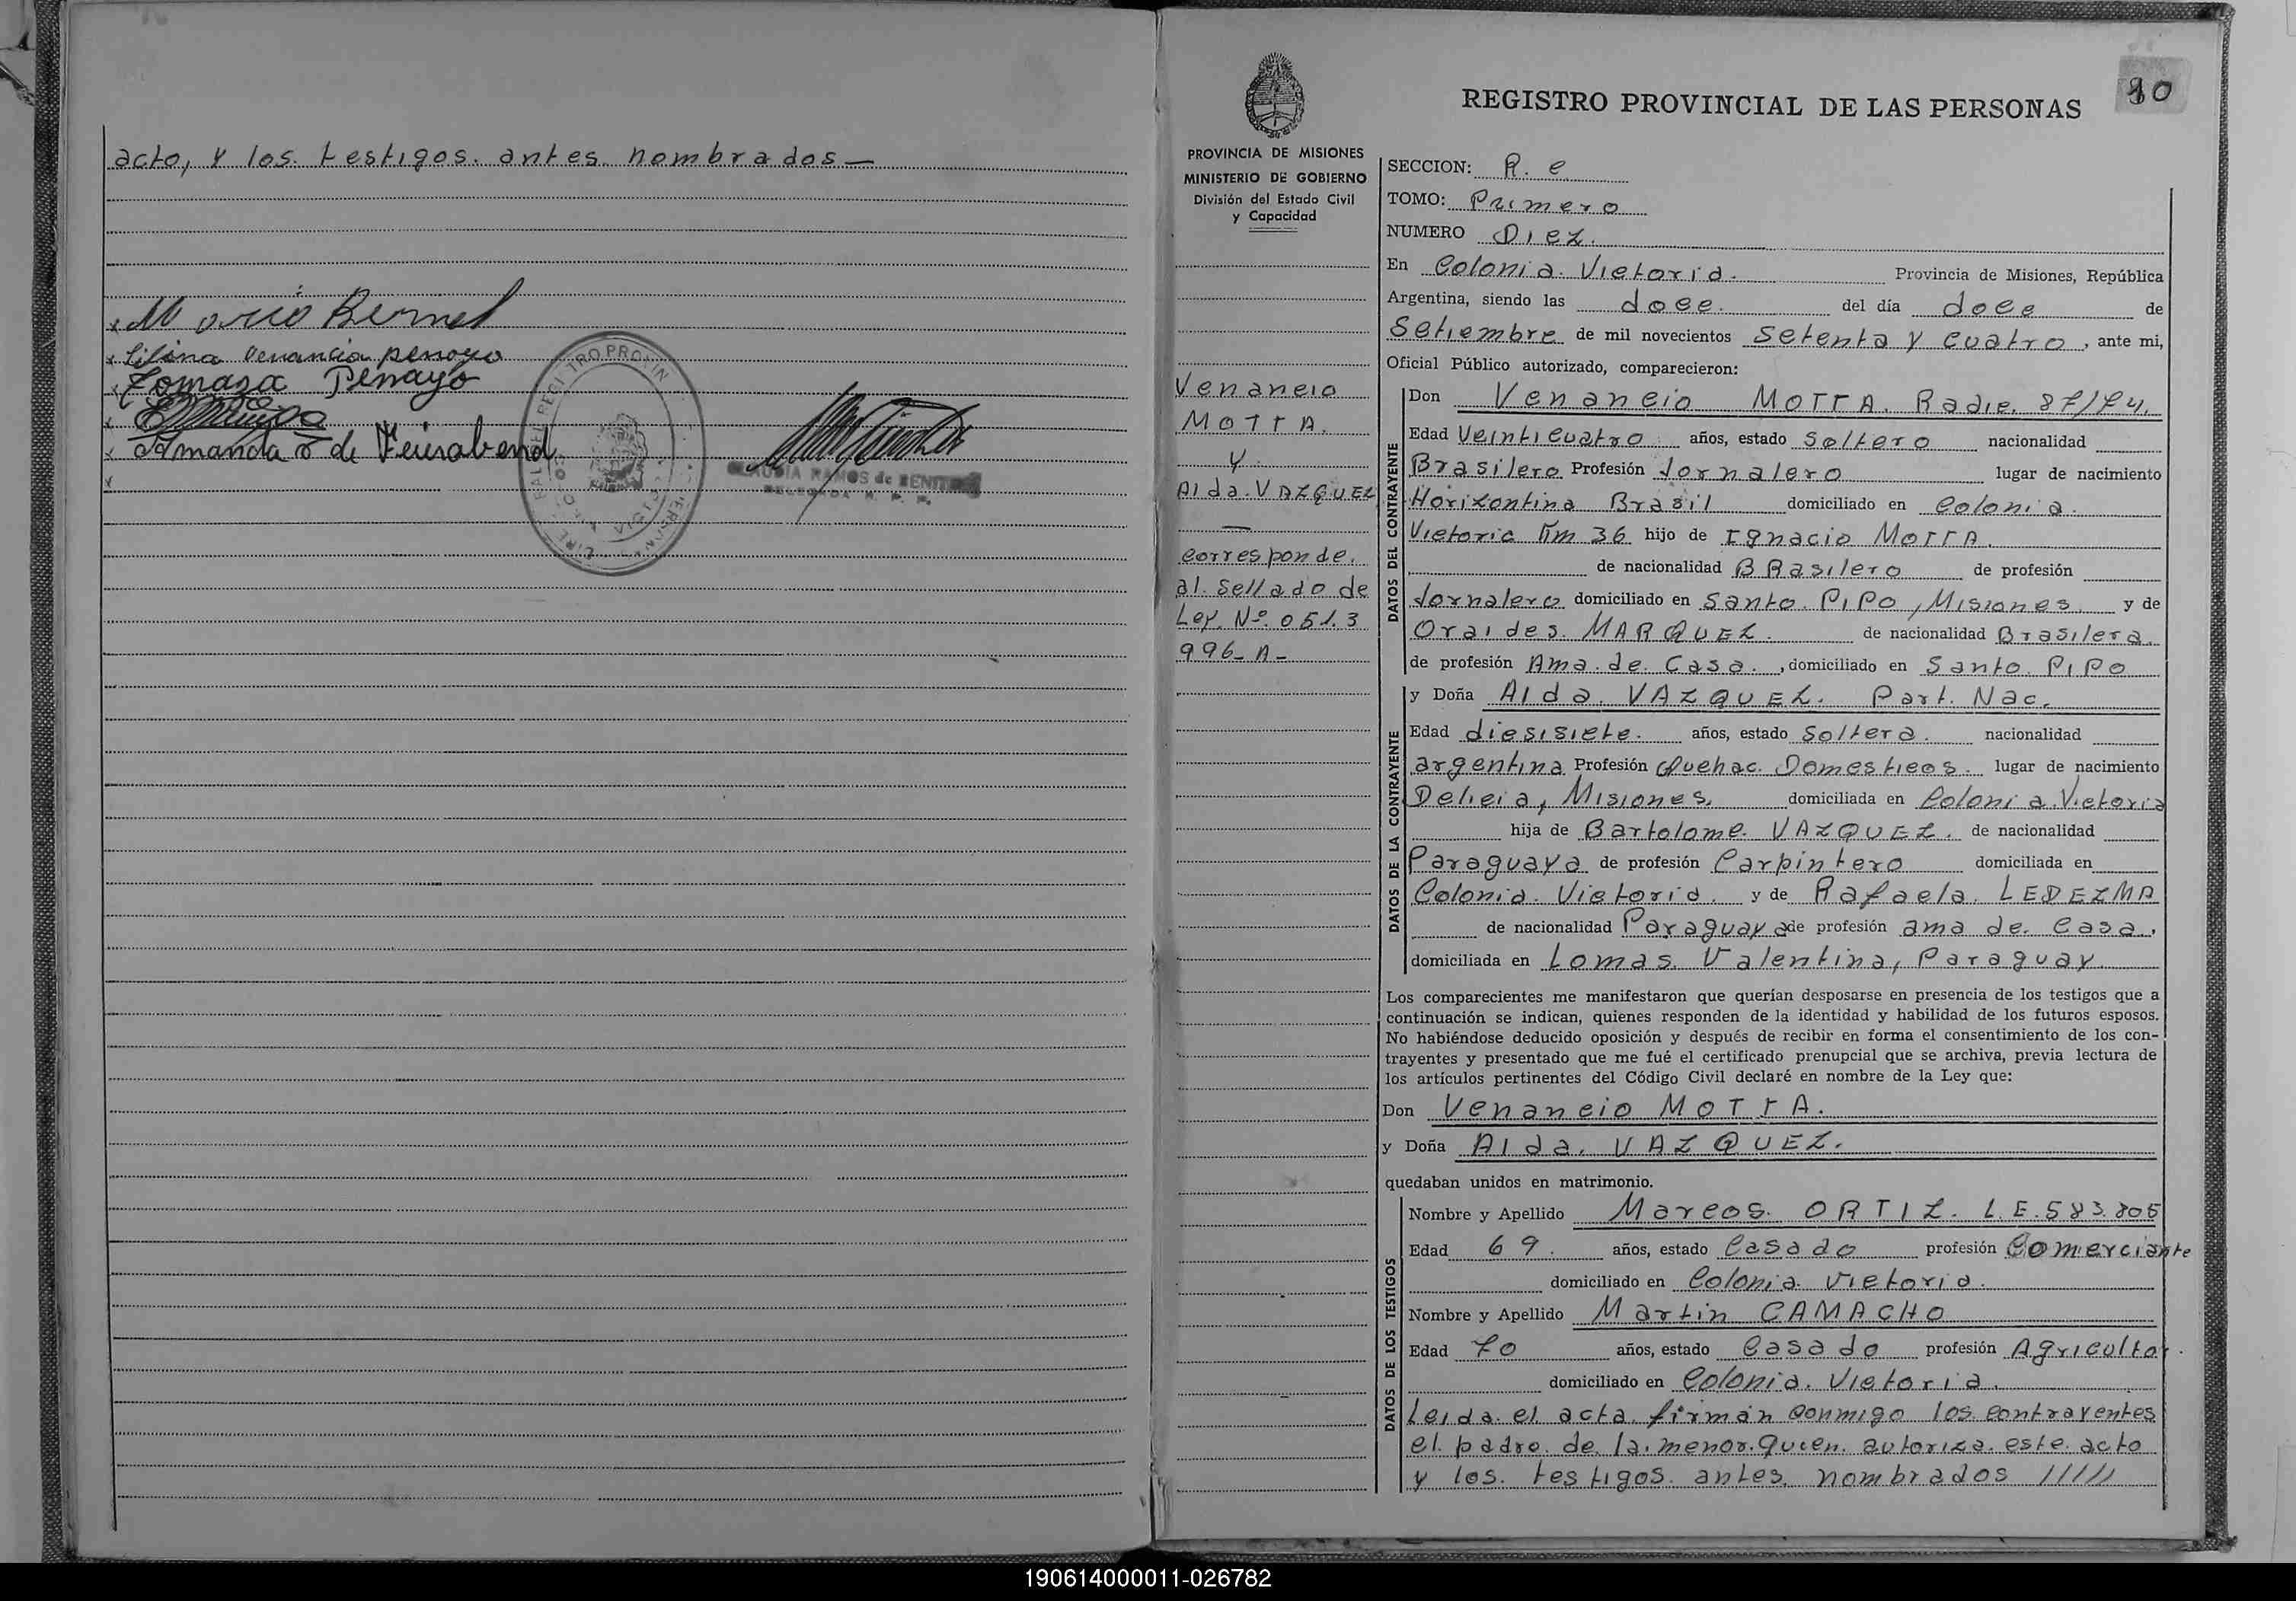 acto, y los testigos antes nombrados —
Mario Bernel
Liliana Venancia penayo
Tomasa Penayo
Amanda O de Feierabend
CLAUDIA RAMOS de BENITEZ
10
REGISTRO PROVINCIAL DE LAS PERSONAS
PROVINCIA DE MISIONES
MINISTERIO DE GOBIERNO
División del Estado Civil
y Capacidad
Venancio
MOTTA.
y
Alda. VAZQUEZ
—
Corresponde.
al. sellado de
Ley. Nº. 051.3
996-A-
SECCION: R. e
TOMO: Primero
NUMERO Diez.
En Colonia. Victoria. Provincia de Misiones, República
Argentina, siendo las doce. del día doce de
Setiembre de mil novecientos setenta y cuatro, ante mi,
Oficial Público autorizado, comparecieron:
DATOS DEL CONTRAYENTE
Don Venancio MOTTA. Radic. 87/74.
Edad Veinticuatro años, estado Soltero nacionalidad
Brasilero Profesión Jornalero lugar de nacimiento
Horizontina Brasil domiciliado en Colonia.
Victoria Km 36 hijo de Ignacio MOTTA.
de nacionalidad BRasilero de profesión
Jornalero domiciliado en Santo. PiPo, Misiones. y de
Oraides. MARQUEZ. de nacionalidad Brasilera.
de profesión Ama. de. Casa. , domiciliado en Santo. PiPo
DATOS DE LA CONTRAYENTE
y Doña Alda. VAZQUEZ. Part. Nac.
Edad diesisiete. años, estado Soltera. nacionalidad
argentina Profesión Quehac. Domesticos. lugar de nacimiento
Delicia, Misiones, domiciliada en Colonia. Victoria
hija de Bartolome. VAZQUEZ. de nacionalidad
Paraguaya de profesión Carpintero domiciliada en
Colonia. Victoria. y de Rafaela. LEDEZMA
de nacionalidad Paraguaya de profesión ama de. Casa.
domiciliada en Lomas. Valentina, Paraguay.
Los comparecientes me manifestaron que querían desposarse en presencia de los testigos que a
continuación se indican, quienes responden de la identidad y habilidad de los futuros esposos.
No habiéndose deducido oposición y después de recibir en forma el consentimiento de los con-
trayentes y presentado que me fué el certificado prenupcial que se archiva, previa lectura de
los artículos pertinentes del Código Civil declaré en nombre de la Ley que:
Don Venancio MOTTA.
y Doña Alda. VAZQUEZ.
quedaban unidos en matrimonio.
DATOS DE LOS TESTIGOS
Nombre y Apellido Marcos. ORTIZ. L.E. 583.805
Edad 69. años, estado Casado profesión Comerciante
domiciliado en Colonia. Victoria.
Nombre y Apellido Martin CAMACHO
Edad 70 años, estado Casado profesión Agricultor.
domiciliado en Colonia. Victoria.
Leida. el acta. firman conmigo los. contrayentes
el. padre. de. la. menor. quien. autoriza. este. acto
y los. testigos. antes. nombrados /////
190614000011-026782